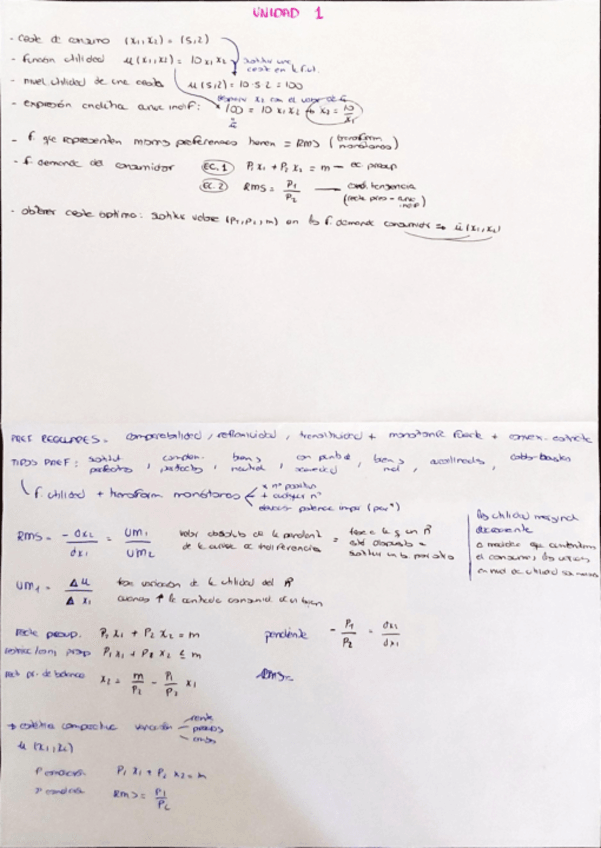 UNIDAD 1
- Cesta de consumo (x₁,x₂) = (5,2)
- función utilidad u(x₁,x₂) = 10x₁x₂ sustituir una cesta en la f.ut.
- nivel utilidad de una cesta u(5,2) = 10·5·2 = 100
despejar x₂ con el valor de
- expresión analítica curva indif: 100 = 10 x₁ x₂ → x₂ = 10/x₁
- f. que representen mismas preferencias tienen = RMS (transform monótonas)
- f. demanda del consumidor EC.1 P₁x₁ + P₂x₂ = m — ec. presup
EC.2 RMS = P₁/P₂ → cond. tangencia
(recta pres = curva indif)
- obtener cesta óptima: sustituir valores (P₁,P₂,m) en las f. demanda consumidor → u(x₁,x₂)
PREF REGULARES = comparabilidad, reflexividad, transitividad + monotonía fuerte + convex. estricta
TIPOS PREF: sustit perfectos, complem. perfectos, bien neutral, con punto saciedad, bien mal, cuasilineales, cobb-douglas
f. utilidad + transform monótonas
x nº positivo
+ cualquier nº
elevar potencia impar
RMS = -dx₂/dx₁ = UM₁/UM₂ valor absoluto de la pendiente de la curva de indiferencia = tasa a la q un
está dispuesto a sustituir un b. por otro
Ley utilidad marginal decreciente
a medida que aumentamos el consumo
UM₁ = Δu/Δx₁ tasa variación de la utilidad del
cuando ↑ la cantidad consumida de un bien
recta presup. P₁x₁ + P₂x₂ = m pendiente -P₁/P₂ = dx₂/dx₁
P₁x₁ + P₂x₂ ≤ m
rect pr. de balance x₂ = m/P₂ - P₁/P₂ x₁ RMS=
→ estática comparativa variación renta
precios
ambas
u(x₁,x₂)
1ª condición P₁x₁ + P₂x₂ = m
2ª condición RMS = P₁/P₂